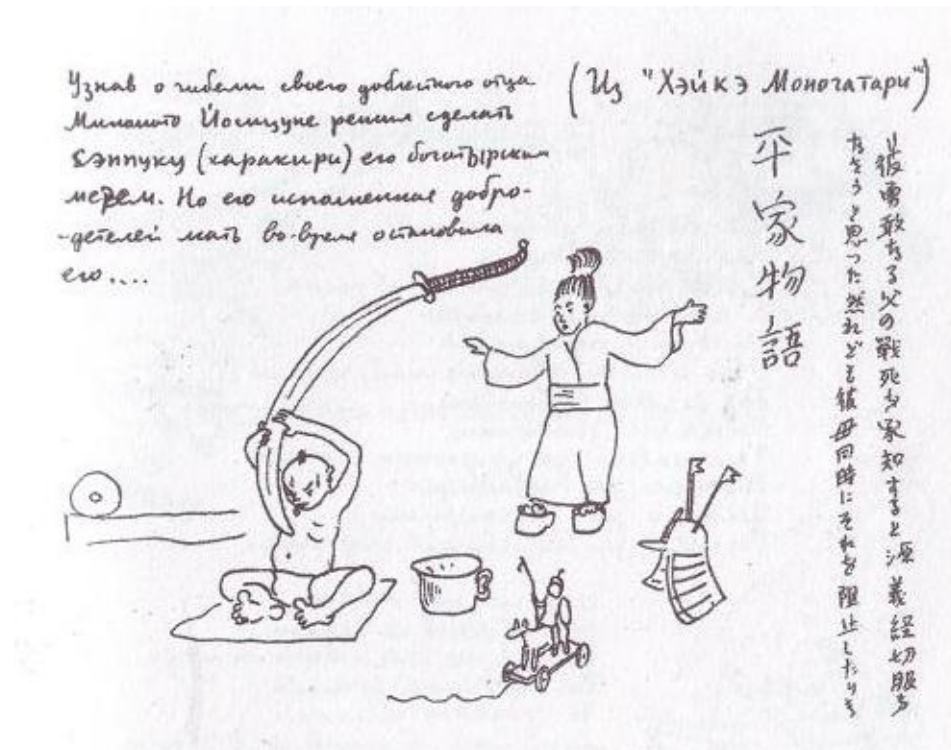 Узнав о гибели своего доблестного отца
Минамото Йосицуне решил сделать
сэппуку (харакири) его богатырским
мечем. Но его исполненная добро-
-детелей мать во-время остановила
его....
(Из "Хэйкэ Моногатари")
平家物語
彼勇敢なる父の戦死を承知すると源義経切服を
なそうと思った然れども彼母同時にそれを阻止したりき